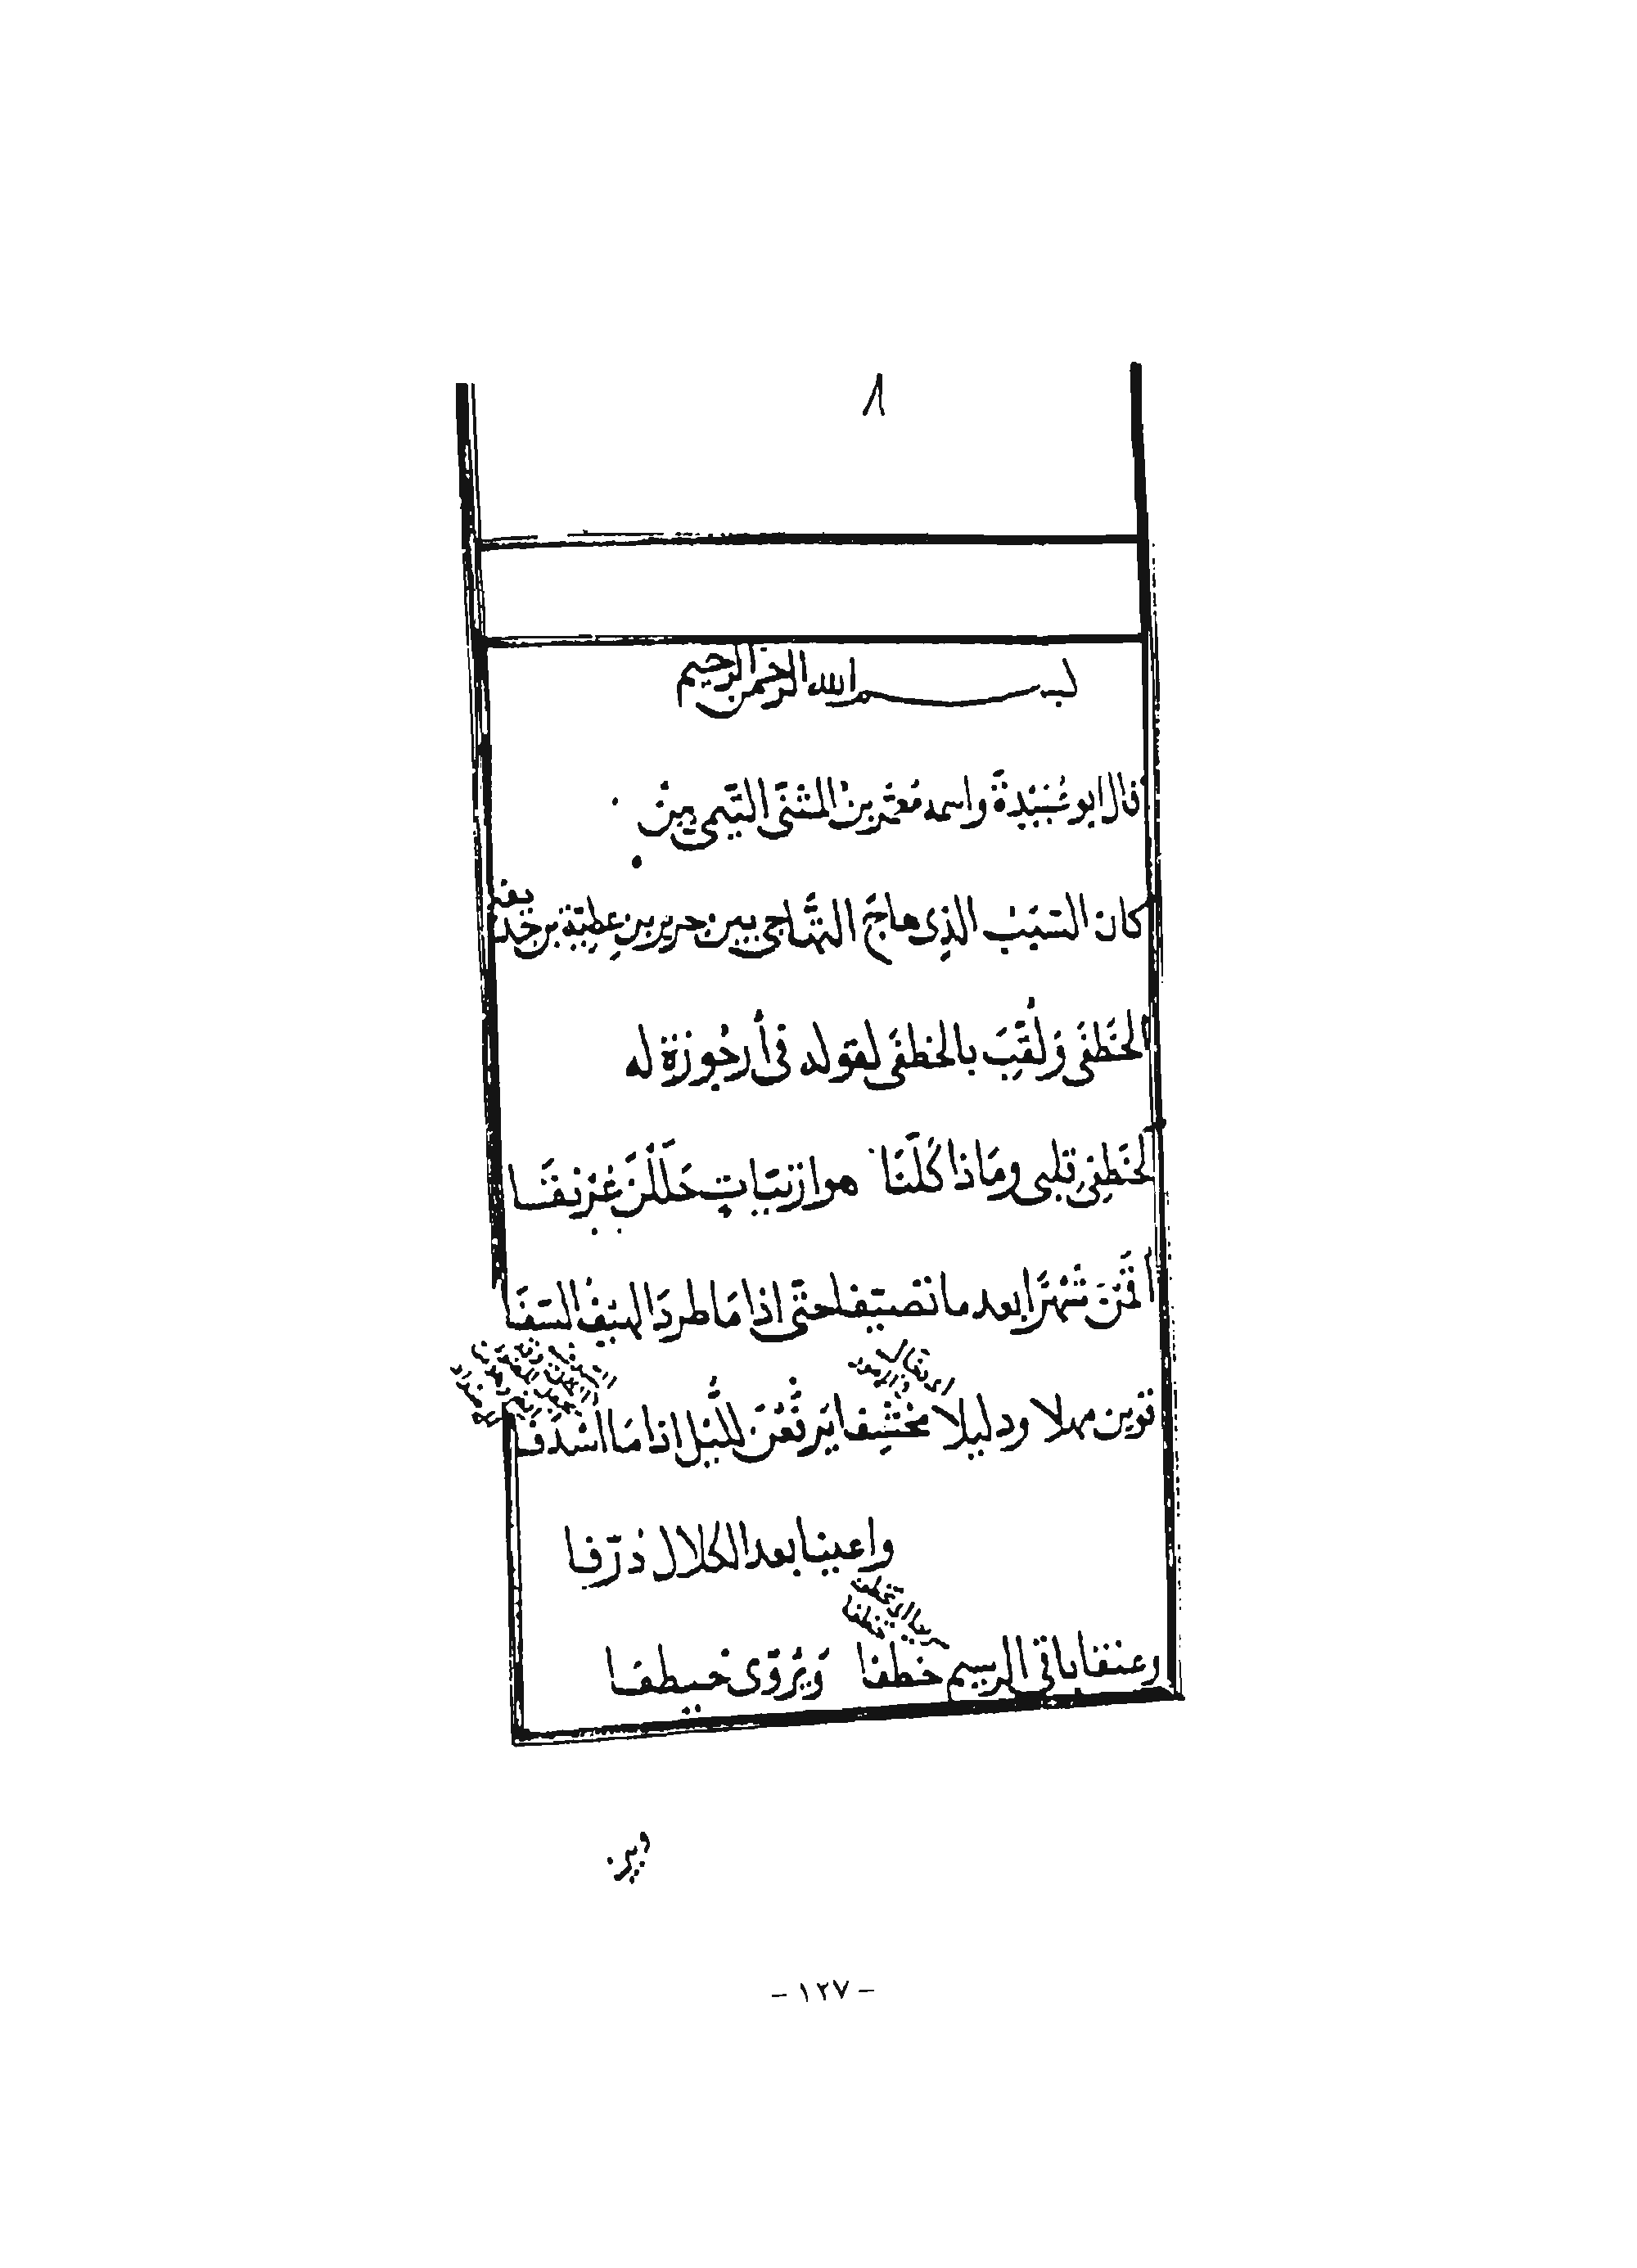 ٨
بسم الله الرحمن الرحيم
قال ابو عُبَيْدَةَ واسمه مُعَمَّر بن المثنى التيمى مِن
كان السَّبَبُ الذى هاج التَّهاجى بين جرير بن عطية بن
الخَطَفَى وَلُقِّبَ بالخطفى لقوله فى أُرجُوزة له
قلبى ومَاذا كَلَّفَا هوازنيّات حَلَلْنَ غَرْنَفَا
أَقَمْنَ شَهْرًا بعد ما تصيّفا حتى اذا مَا طردَ الهَيْفُ السَّفَا
قرّبن مهلا ودليلا مِخْشَفا يَرْفَعْنَ لِلَّيْلِ اذا مَا اسْدَفَا
واعينا بعد الكلال ذُرَّفا
وعنقا باقى الرسيم خطفا وَيُرْوَى خيطفا
- ١٢٧ -